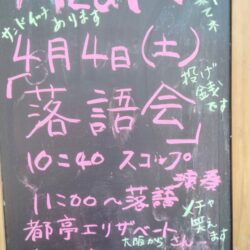 サンドイッチあります
4月4日(土)
「落語会」
投げ銭です
10:40 スコップ演奏
11:00〜落語
都亭エリザベートさん
大阪から
メチャ笑えます